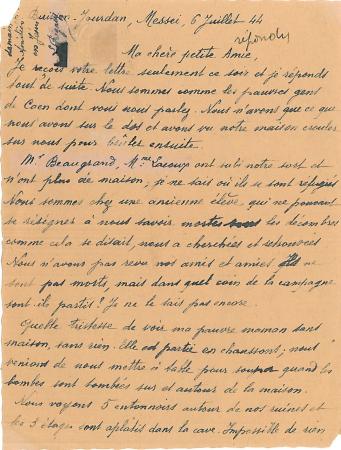 Dutier-Jourdan, Messei, 6 Juillet 44
répondu
Ma chère petite Amie,
Je reçois votre lettre seulement ce soir et je réponds
tout de suite. Nous sommes comme les pauvres gens
de Caen dont vous nous parlez. Nous n'avons que ce que
nous avons sur le dos et avons vu notre maison crouler
sur nous pour brûler ensuite.
Mr Beaugrand, Mme Lacoux ont subi notre sort et
n'ont plus de maison; je ne sais où ils se sont réfugiés
Nous sommes chez une ancienne élève, qui ne pouvant
se résigner à nous savoir mortes sous les décombres
comme cela se disait, nous a cherchées et retrouvées
Nous n'avons pas revu nos amis et amies. Ils ne
sont pas morts, mais dans quel coin de la campagne
sont-ils partis? Je ne le sais pas encore.
Quelle tristesse de voir ma pauvre maman sans
maison, sans rien. Elle est partie en chaussons; nous
venions de nous mettre à table pour souper quand les
bombes sont tombées sur et autour de la maison.
Nous voyons 5 entonnoirs autour de nos ruines et
les 3 étages sont aplatis dans la cave. Impossible de rien